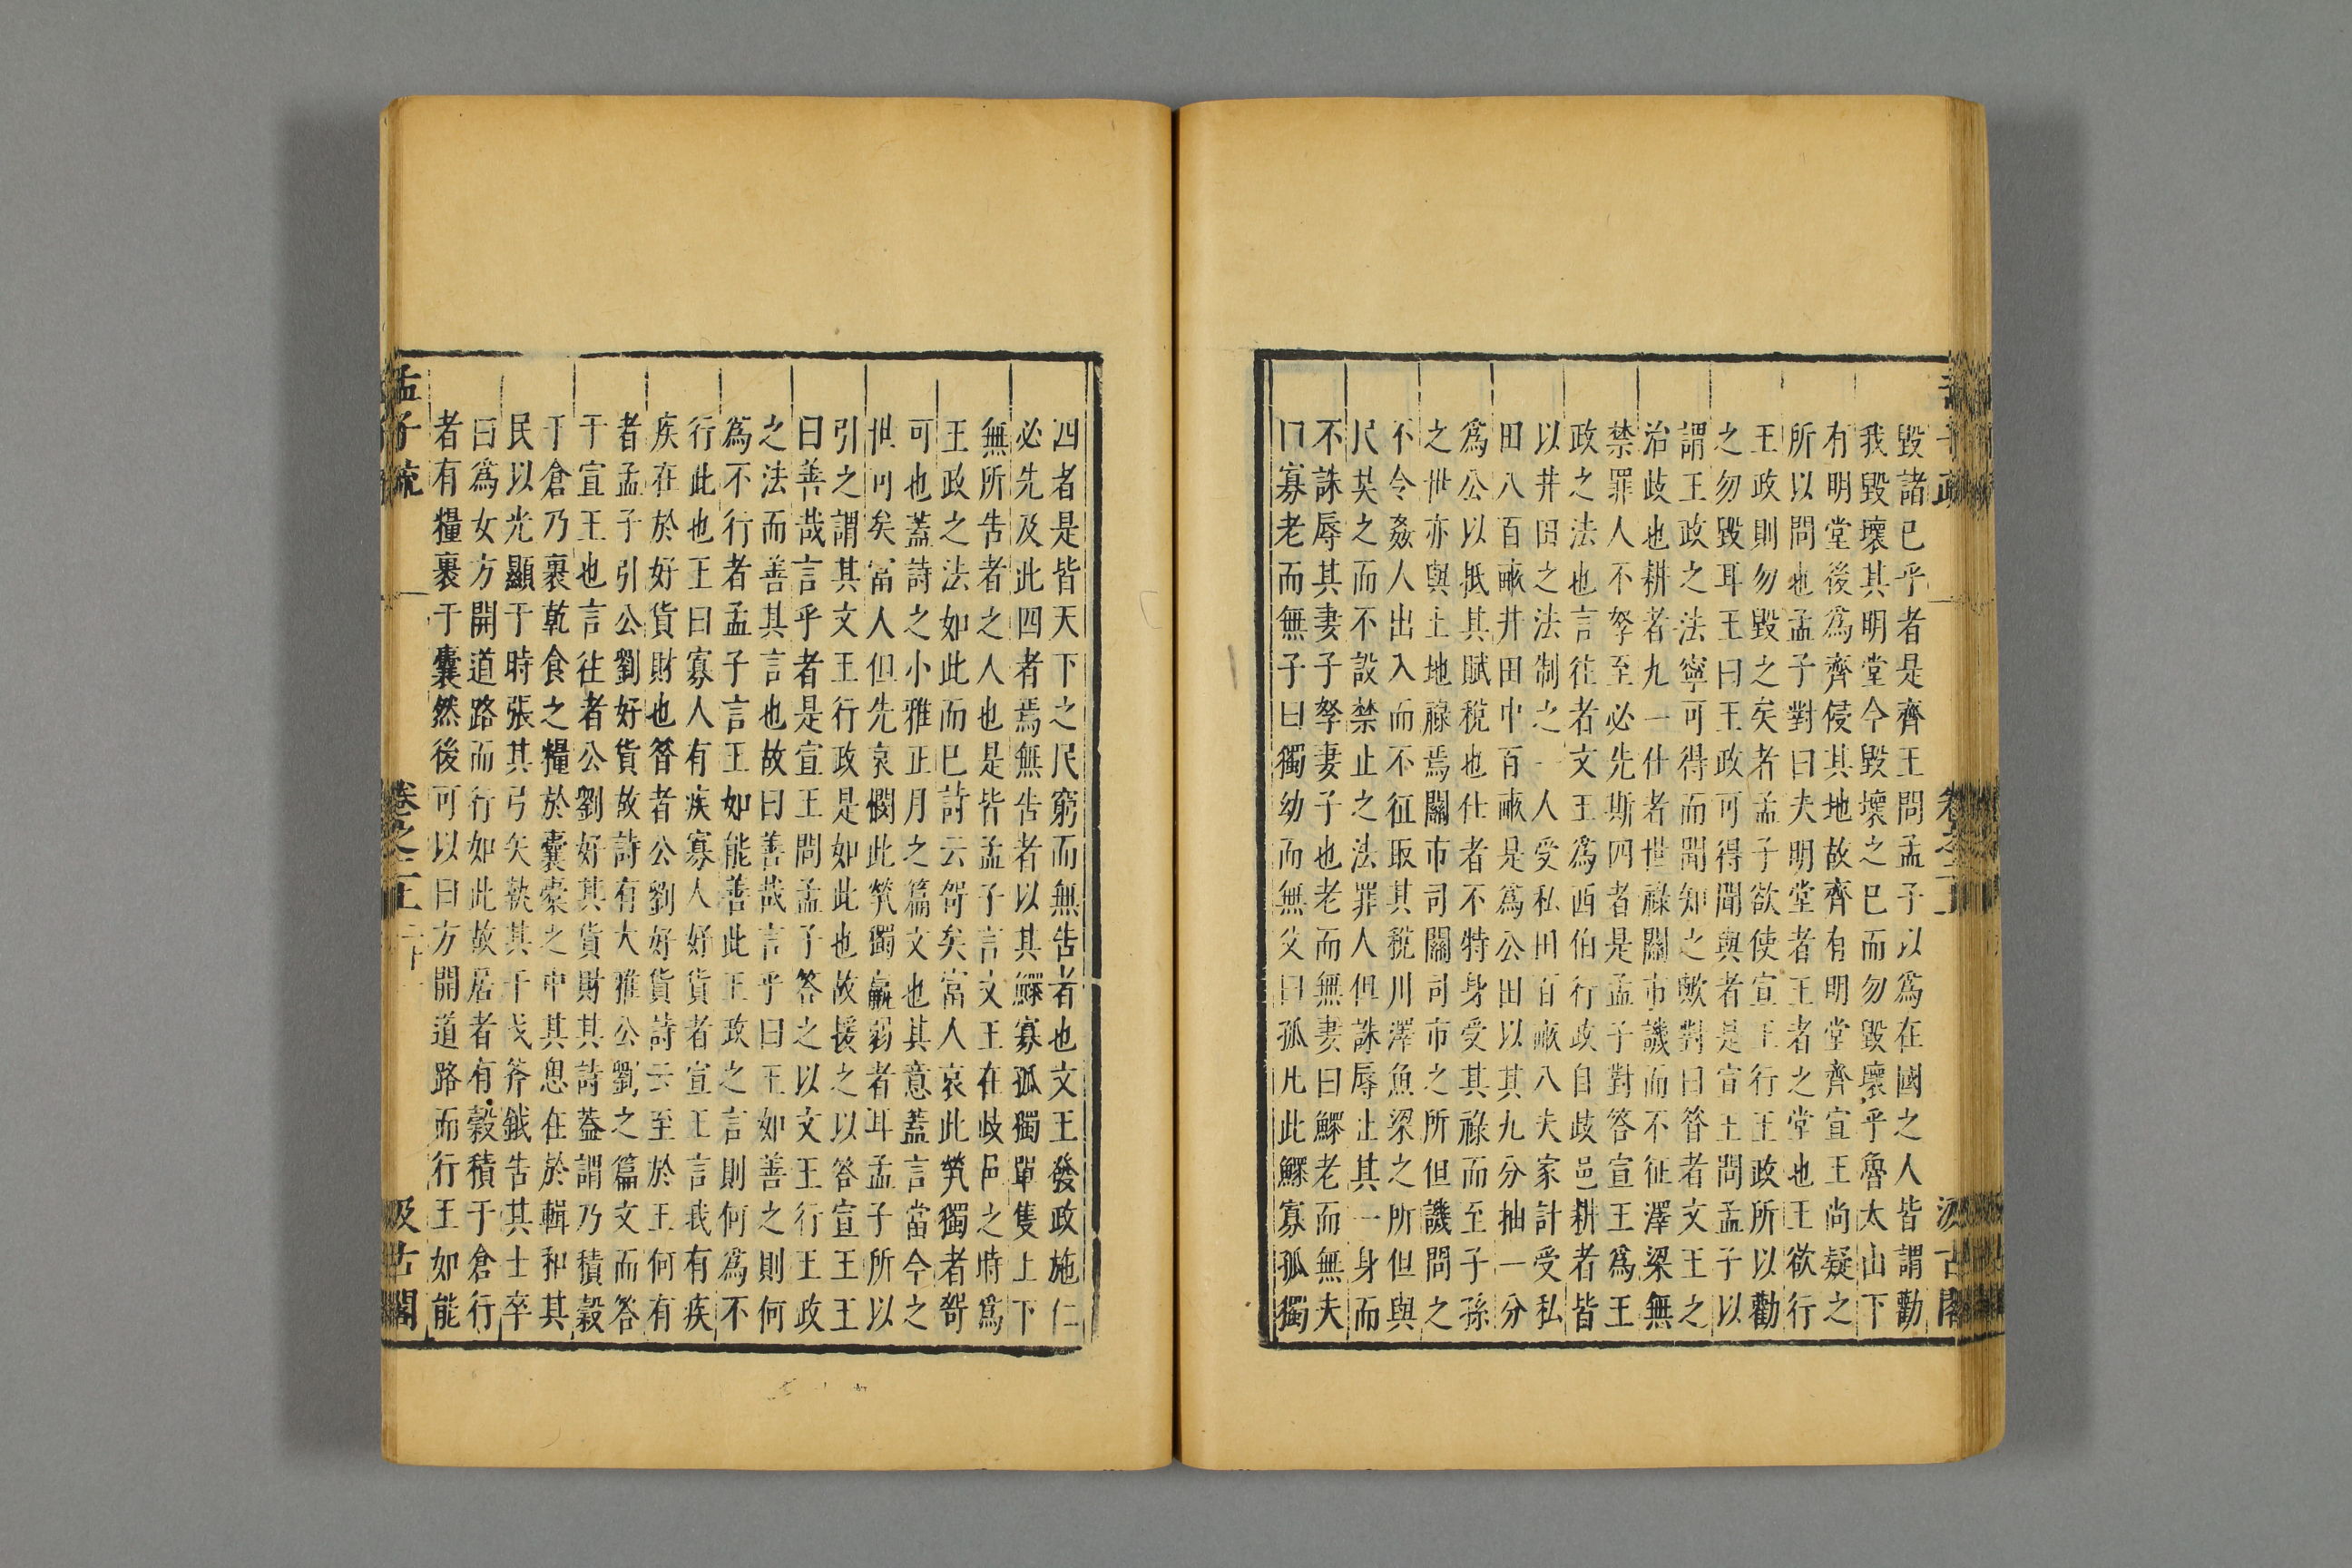 毀諸已乎者是齊王問孟子以為在國之人皆謂勸
我毀壞其明堂今毀壞之已而勿毀壞乎魯太山下
有明堂後為齊侵其地故齊有明堂齊宣王尚疑之
所以問也孟子對曰夫明堂者王者之堂也王欲行
王政則勿毀之矣者孟子欲使宣王行王政所以勸
之勿毀耳王曰王政可得聞與者是宣王問孟子以
謂王政之法寧可得而聞知之歟對曰答者文王之
治歧也耕者九一仕者世祿關市譏而不征澤梁無
禁罪人不孥至必先斯四者是孟子對答宣王為王
政之法也言往者文王為西伯行政自歧邑耕者皆
以井田之法制之一人受私田百畝八夫家計受私
田八百畝井田中百畝是為公田以其九分抽一分
為公以抵其賦稅也仕者不特身受其祿而至子孫
之世亦與土地祿焉關市司關司市之所但譏問之
不令姦人出入而不征取其稅川澤魚梁之所但與
民共之而不設禁止之法罪人但誅辱止其一身而
不誅辱其妻子孥妻子也老而無妻曰鰥老而無夫
曰寡老而無子曰獨幼而無父曰孤凡此鰥寡孤獨
四者是皆天下之民窮而無告者也文王發政施仁
必先及此四者焉無告者以其鰥寡孤獨單隻上下
無所告者之人也是皆孟子言文王在歧邑之時為
王政之法如此而已詩云哿矣富人哀此煢獨者哿
可也蓋詩之小雅正月之篇文也其意蓋言當今之
世可矣富人但先哀憫此煢獨羸弱者耳孟子所以
引之謂其文王行政是如此也故援之以答宣王王
曰善哉言乎者是宣王問孟子答之以文王行王政
之法而善其言也故曰善哉言乎曰王如善之則何
為不行者孟子言王如能善此王政之言則何為不
行此也王曰寡人有疾寡人好貨者宣王言我有疾
疾在於好貨財也答者公劉好貨詩云至於王何有
者孟子引公劉好貨故詩有大雅公劉之篇文而答
于宣王也言往者公劉好其貨財其詩蓋謂乃積穀
于倉乃裹乾食之糧於囊橐之中其思在於輯和其
民以光顯于時張其弓矢執其干戈斧鉞告其士卒
曰為女方開道路而行如此故居者有穀積于倉行
者有糧裹于囊然後可以曰方開道路而行王如能
孟子疏 卷之二 汲古閣